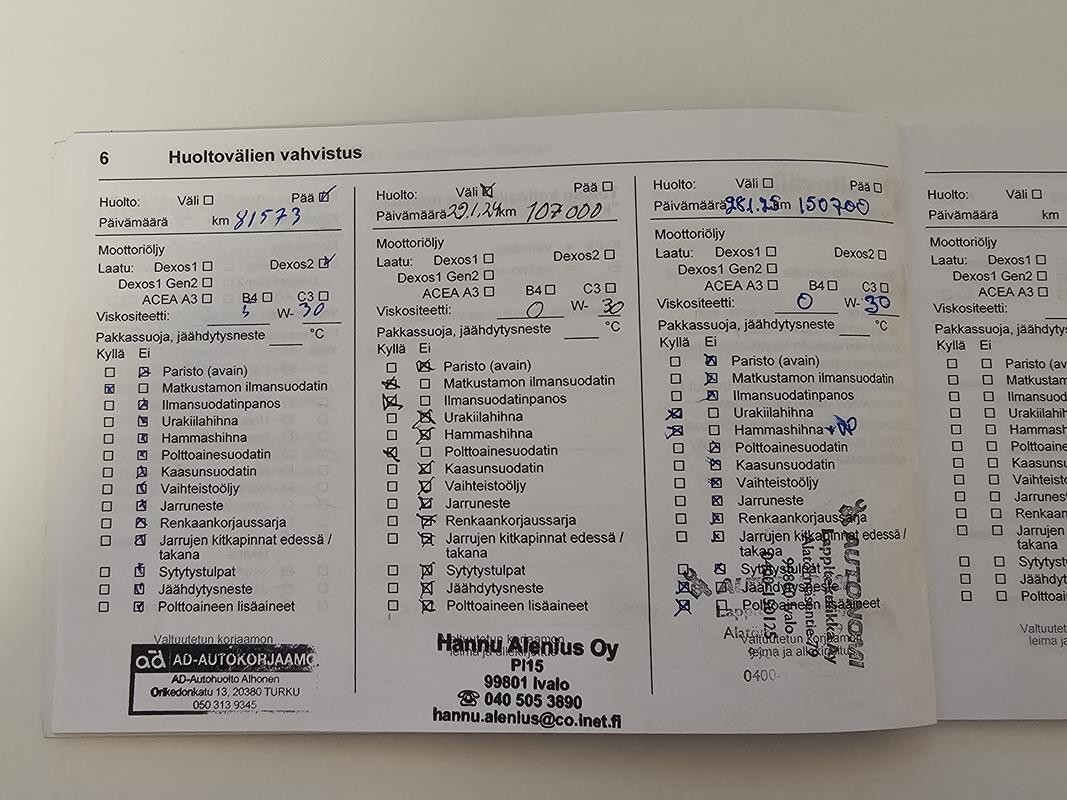 6 Huoltovälien vahvistus
Huolto: Väli ☐ Pää ☑
Päivämäärä km 81573
Moottoriöljy
Laatu: Dexos1 ☐ Dexos2 ☑
Dexos1 Gen2 ☐
ACEA A3 ☐ B4 ☐ C3 ☐
Viskositeetti: 5 W- 30
Pakkassuoja, jäähdytysneste ____ °C
Kyllä Ei
☐ ☒ Paristo (avain)
☒ ☐ Matkustamon ilmansuodatin
☐ ☒ Ilmansuodatinpanos
☐ ☒ Urakiilahihna
☐ ☒ Hammashihna
☐ ☒ Polttoainesuodatin
☐ ☒ Kaasunsuodatin
☐ ☒ Vaihteistoöljy
☐ ☒ Jarruneste
☐ ☒ Renkaankorjaussarja
☐ ☒ Jarrujen kitkapinnat edessä /
takana
☐ ☒ Sytytystulpat
☐ ☒ Jäähdytysneste
☐ ☒ Polttoaineen lisäaineet
Valtuutetun korjaamon
ad AD-AUTOKORJAAMO
AD-Autohuolto Alhonen
Orikedonkatu 13, 20380 TURKU
050 313 9345
Huolto: Väli ☒ Pää ☐
Päivämäärä 29.1.24 km 107000
Moottoriöljy
Laatu: Dexos1 ☐ Dexos2 ☐
Dexos1 Gen2 ☐
ACEA A3 ☐ B4 ☐ C3 ☐
Viskositeetti: 0 W- 30
Pakkassuoja, jäähdytysneste ____ °C
Kyllä Ei
☐ ☒ Paristo (avain)
☒ ☐ Matkustamon ilmansuodatin
☒ ☐ Ilmansuodatinpanos
☐ ☒ Urakiilahihna
☐ ☒ Hammashihna
☒ ☐ Polttoainesuodatin
☐ ☒ Kaasunsuodatin
☐ ☒ Vaihteistoöljy
☐ ☒ Jarruneste
☐ ☒ Renkaankorjaussarja
☐ ☒ Jarrujen kitkapinnat edessä /
takana
☐ ☒ Sytytystulpat
☐ ☒ Jäähdytysneste
☐ ☒ Polttoaineen lisäaineet
Valtuutetun korjaamon
leima ja allekirjoitus
Hannu Alenius Oy
Pl15
99801 Ivalo
☎ 040 505 3890
hannu.alenius@co.inet.fi
Huolto: Väli ☐ Pää ☐
Päivämäärä 28.1.25 km 150700
Moottoriöljy
Laatu: Dexos1 ☐ Dexos2 ☐
Dexos1 Gen2 ☐
ACEA A3 ☐ B4 ☐ C3 ☐
Viskositeetti: 0 W- 30
Pakkassuoja, jäähdytysneste ____ °C
Kyllä Ei
☐ ☒ Paristo (avain)
☐ ☒ Matkustamon ilmansuodatin
☐ ☒ Ilmansuodatinpanos
☒ ☐ Urakiilahihna
☒ ☐ Hammashihna
☐ ☒ Polttoainesuodatin
☐ ☒ Kaasunsuodatin
☐ ☒ Vaihteistoöljy
☐ ☒ Jarruneste
☐ ☒ Renkaankorjaussarja
☐ ☒ Jarrujen kitkapinnat edessä /
takana
☐ ☒ Sytytystulpat
☒ ☐ Jäähdytysneste
☒ ☐ Polttoaineen lisäaineet
Valtuutetun korjaamon
leima ja allekirjoitus
99800 Ivalo
0400-
Huolto: Väli ☐
Päivämäärä km
Moottoriöljy
Laatu: Dexos1 ☐
Dexos1 Gen2 ☐
ACEA A3 ☐
Viskositeetti:
Pakkassuoja, jäähdytys
Kyllä Ei
☐ ☐ Paristo (av
☐ ☐ Matkustam
☐ ☐ Ilmansuoda
☐ ☐ Urakiilahih
☐ ☐ Hammashi
☐ ☐ Polttoaines
☐ ☐ Kaasunsu
☐ ☐ Vaihteistoö
☐ ☐ Jarruneste
☐ ☐ Renkaank
☐ ☐ Jarrujen
takana
☐ ☐ Sytytyst
☐ ☐ Jäähdyt
☐ ☐ Polttoa
Valtuutet
leima ja